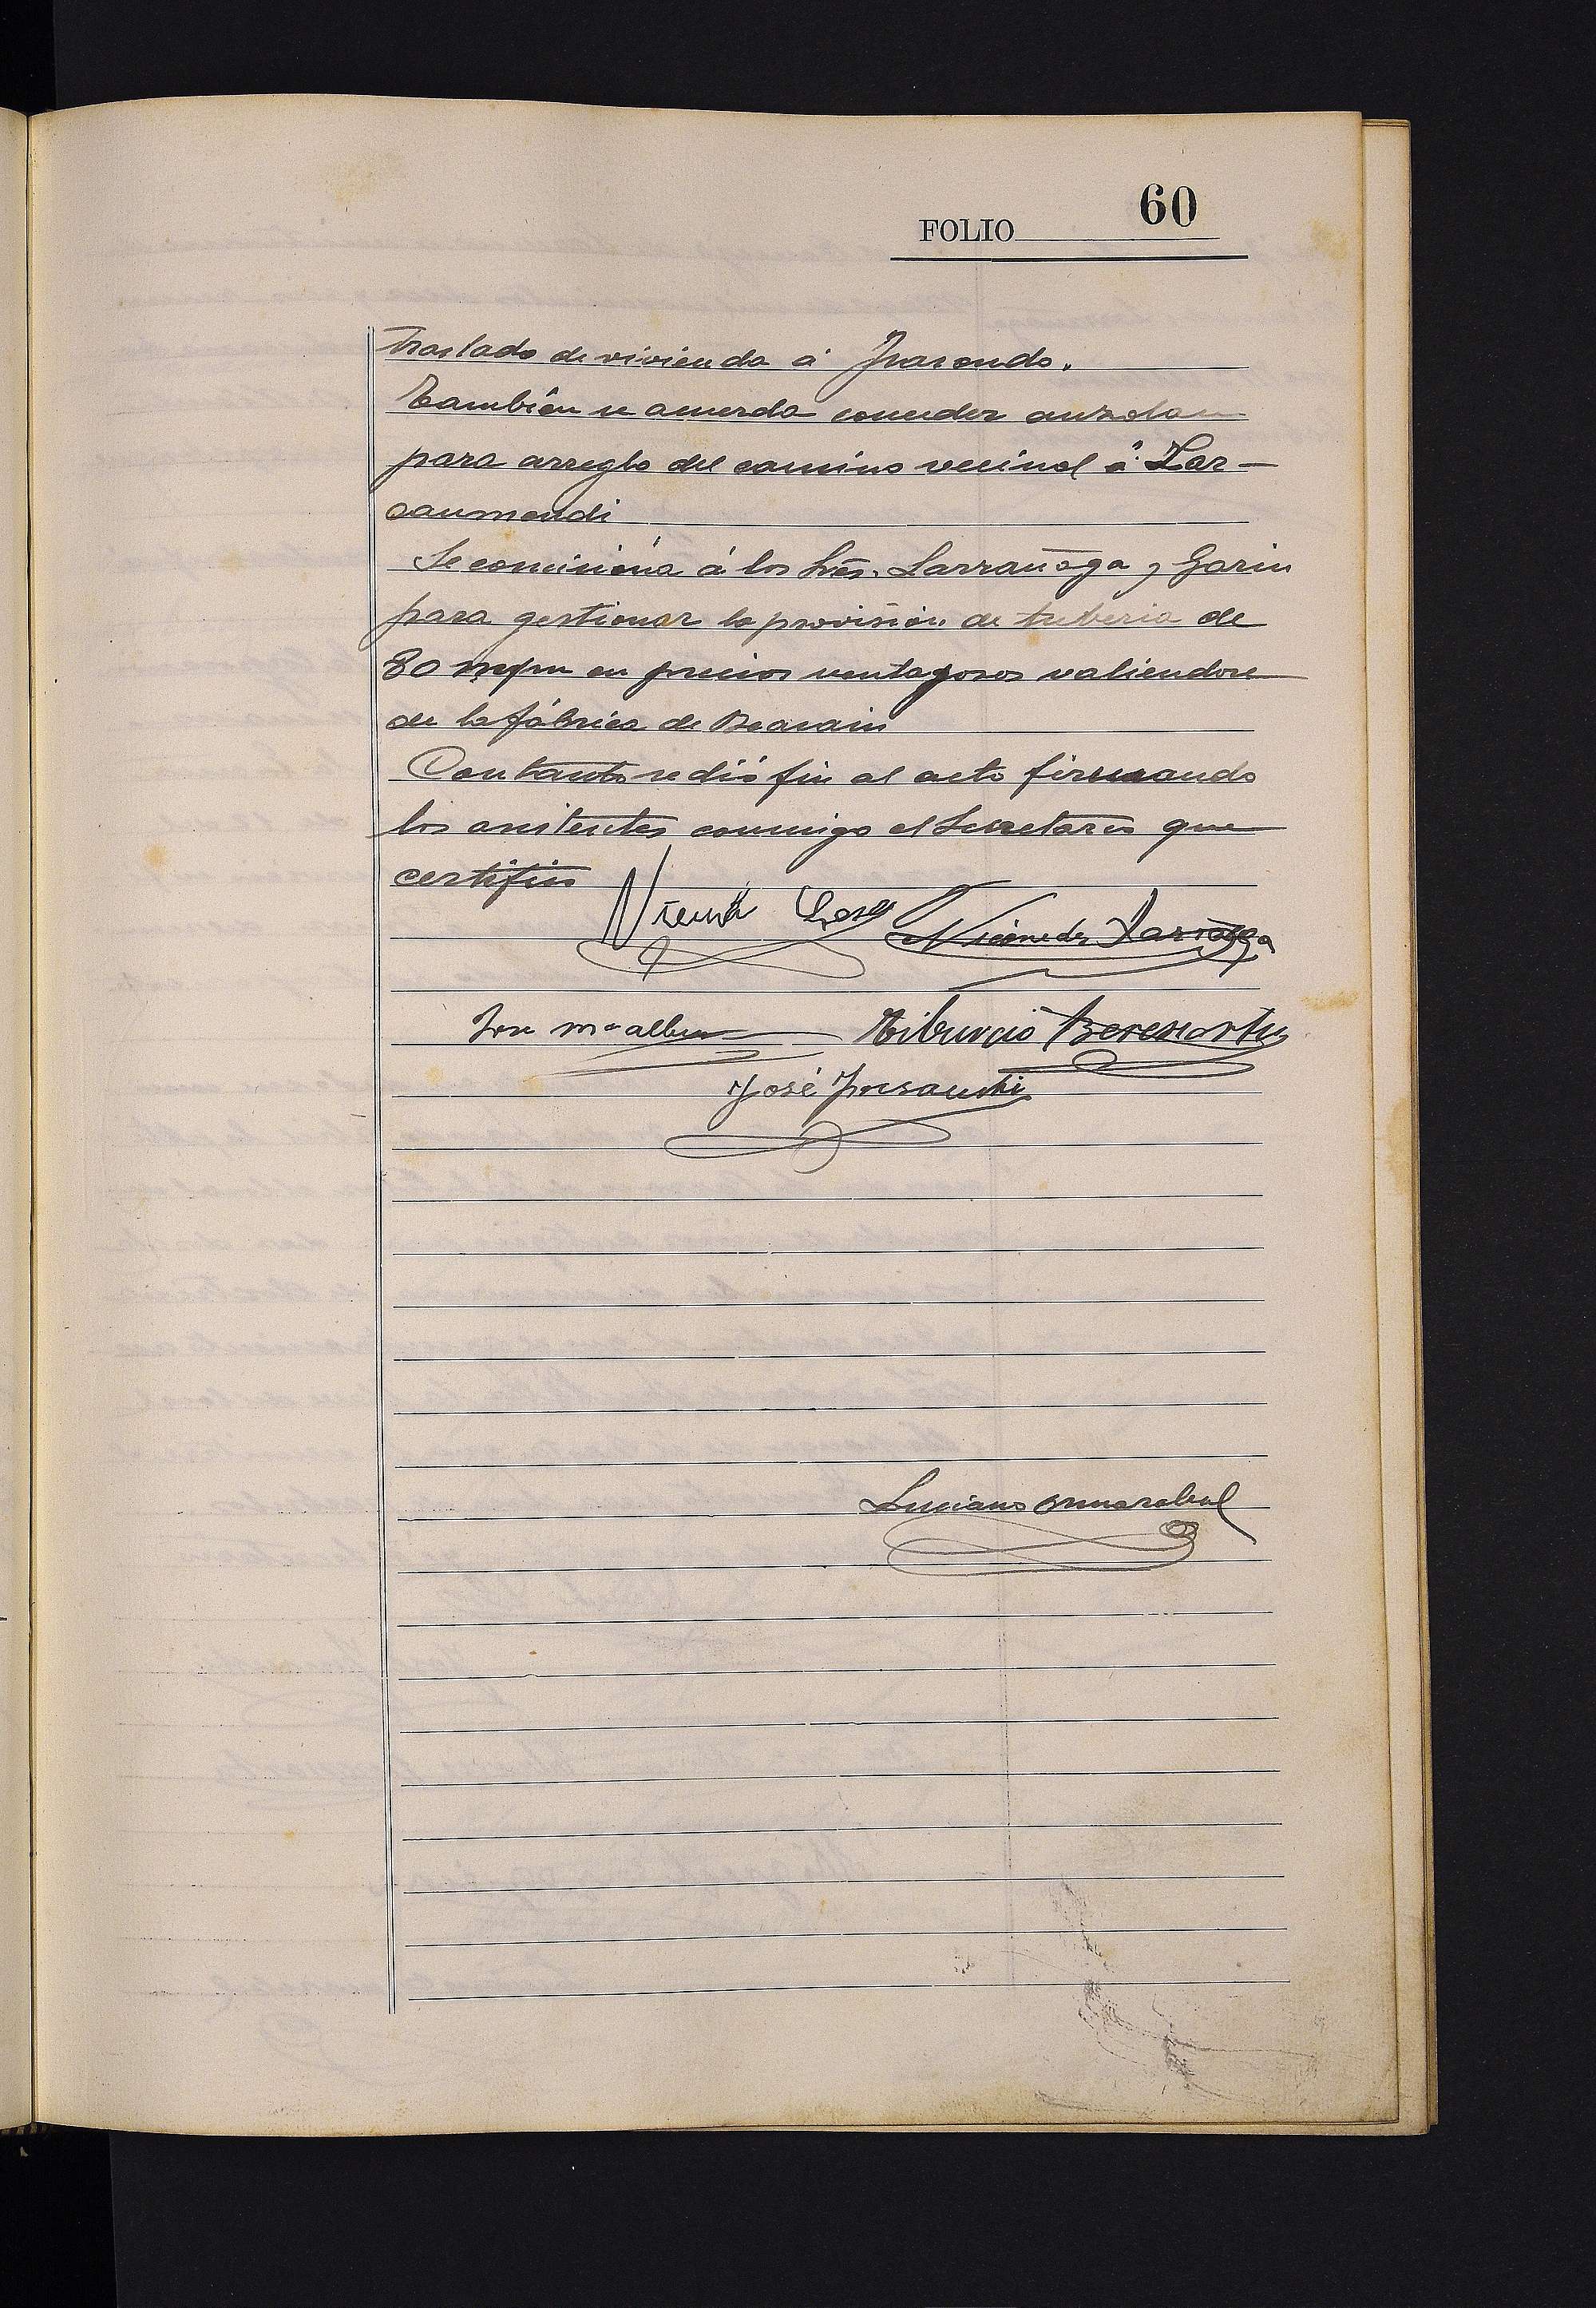 FOLIO 60
traslado de vivienda á Yrarondo.
Tambien se acuerda conceder auzolan
para arreglo del camino vecinal á Lar-
raumendi
Se comisiona á los Srēs. Larrañaga y Garin
para gestionar la provisión de tuberia de
80 m/m en precios ventagosos valiendose
de la fábrica de Beasain
Con tanto se dió fin al acto firmando
los asistentes conmigo el Secretario que
certifico
Nicomedes Larrañaga
Jose Mª
Tiburcio Berasiartu
José Ynsausti
Luciano Ormazabal